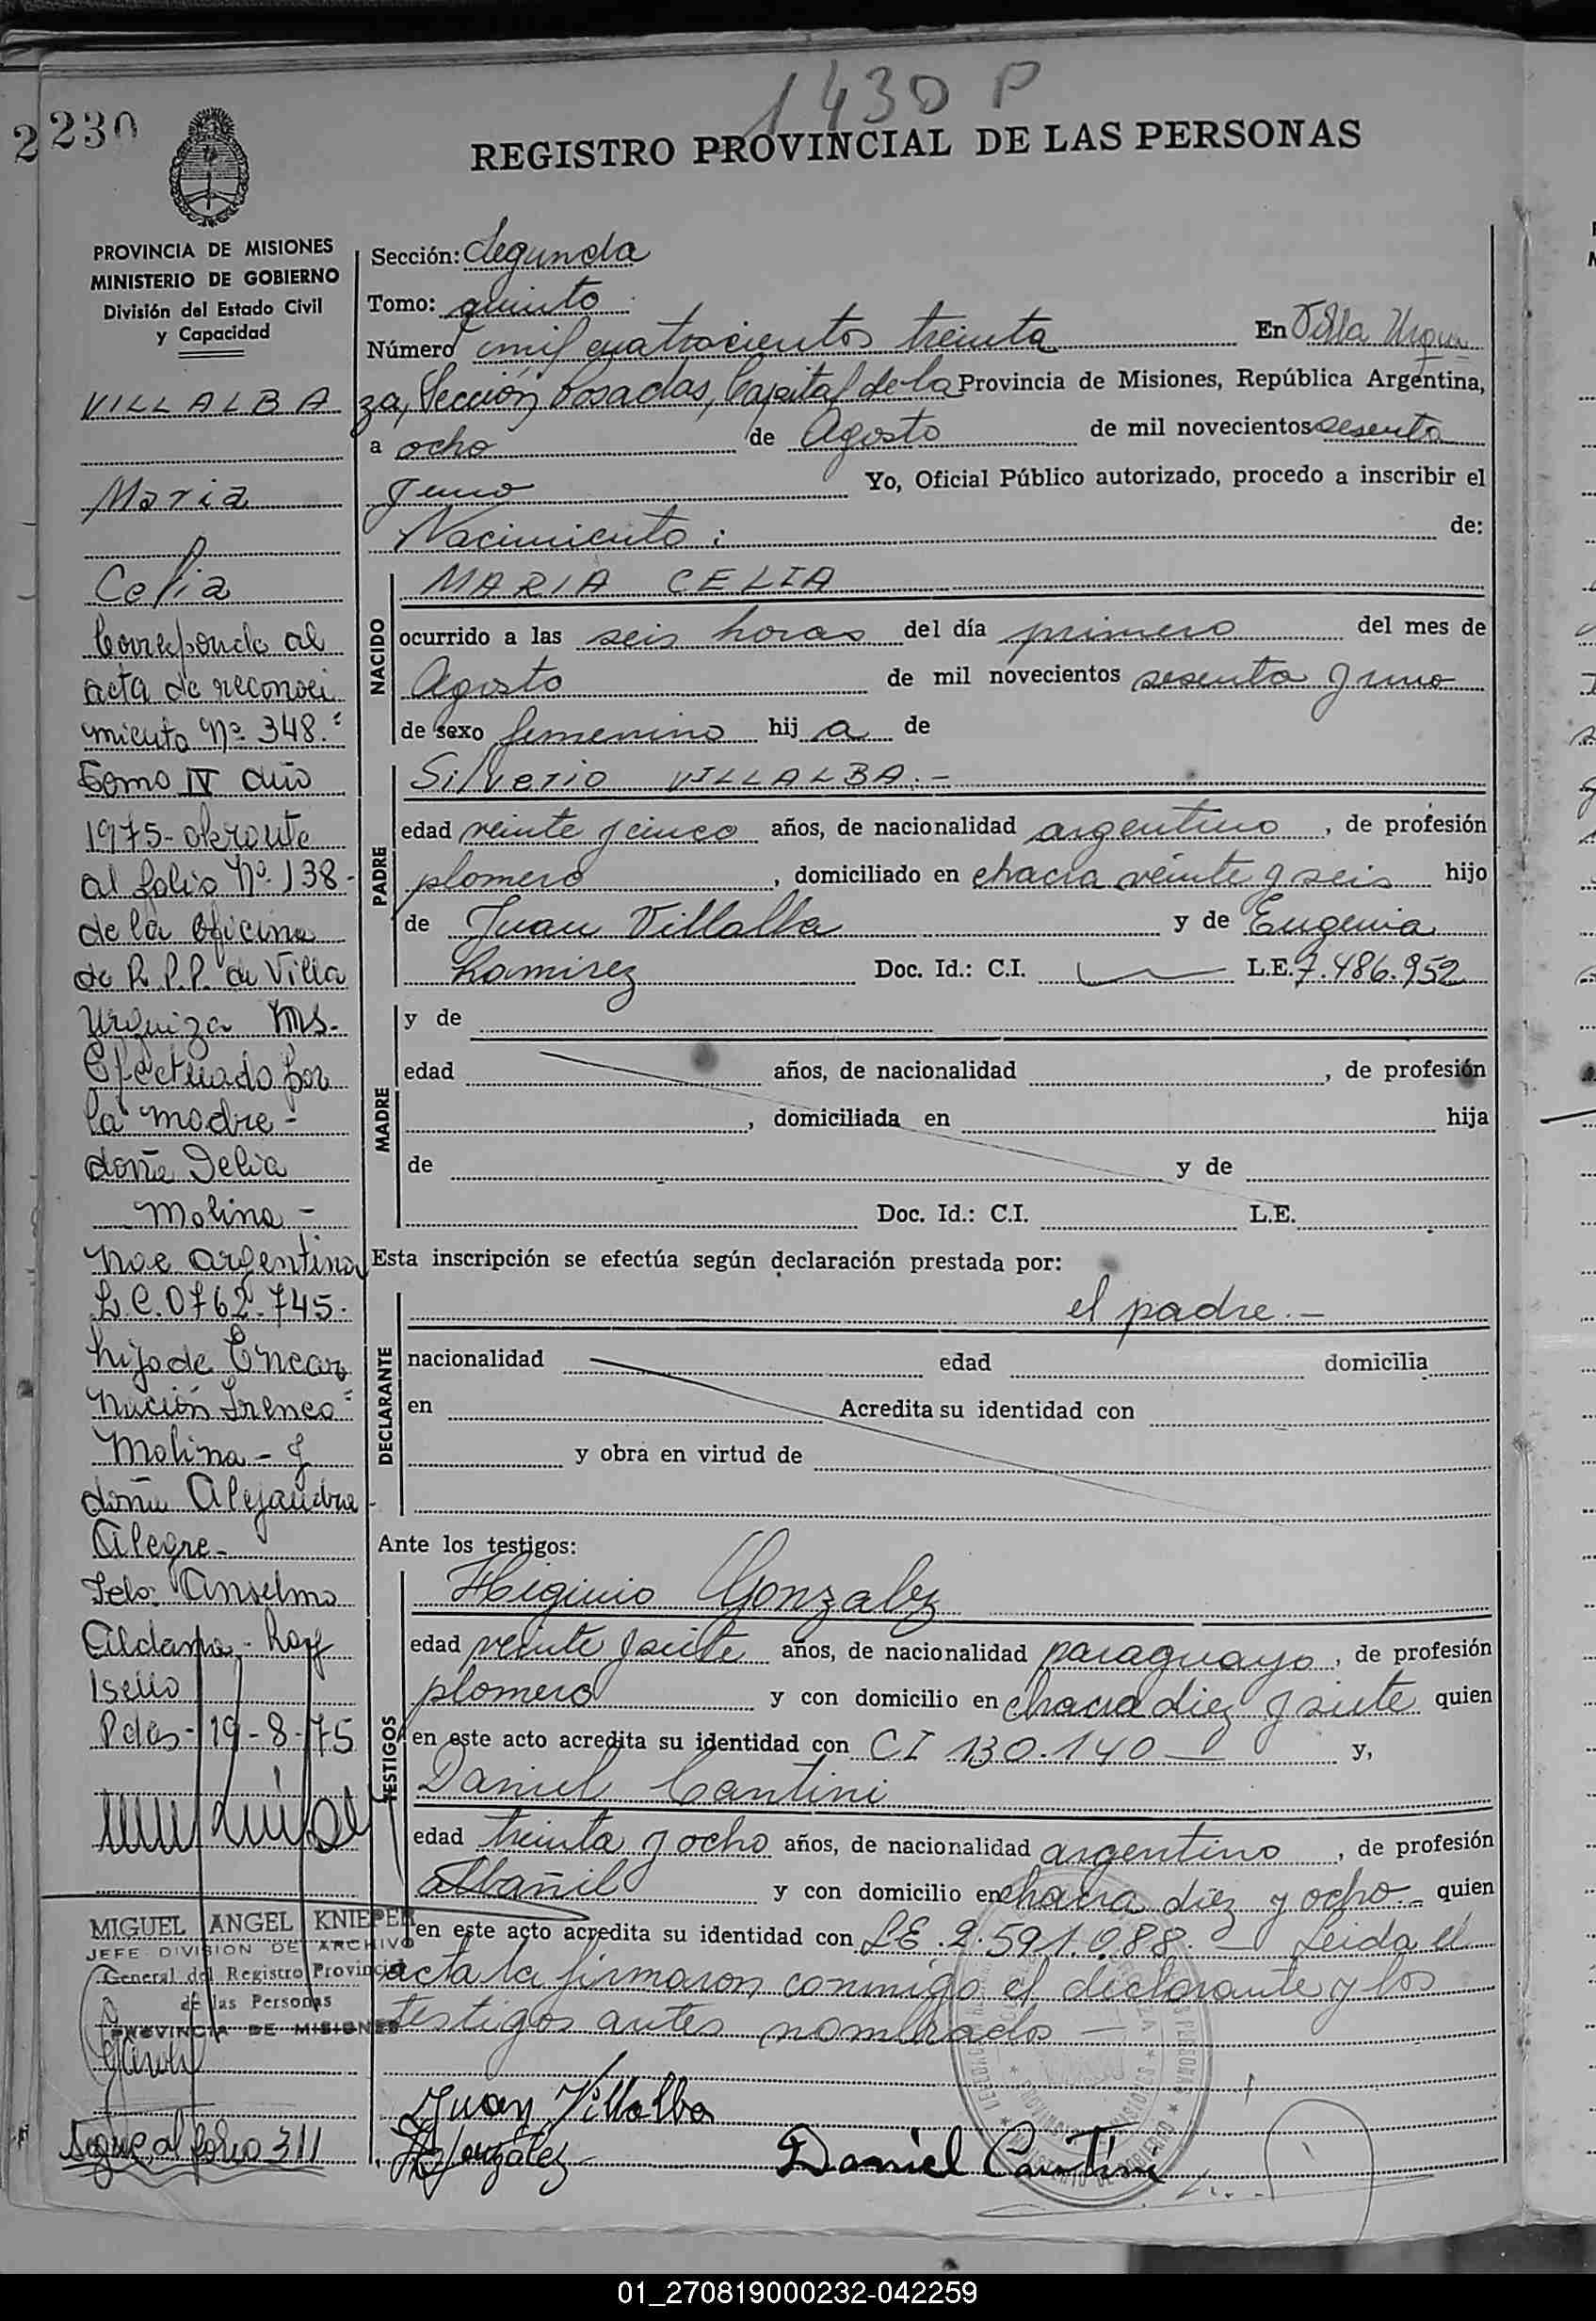 1430 P
2 230
REGISTRO PROVINCIAL DE LAS PERSONAS
PROVINCIA DE MISIONES
MINISTERIO DE GOBIERNO
División del Estado Civil
y Capacidad
VILLALBA
Maria
Celia
Corresponde al
acta de reconoci
miento Nº 348.=
Tomo IV año
1975- obrante
al folio Nº 138-
de la oficina
de R.P.P. de Villa
Urquiza Ms.
Efectuado por
la madre-
doña Delia
Molina-
nac argentina
L.C.0762.745.
hija de Encar
nación Irineo=
Molina- y
doña Alejandra
Alegre-
Fdo: Anselmo
Aldama- Roy
Isello
Pdas- 19-8-75
MIGUEL ANGEL KNIEPER
JEFE DIVISION DE ARCHIVO
General del Registro Provincial
de las Personas
PROVINCIA DE MISIONES
Sigue al folio 311
Sección: Segunda
Tomo: quinto
Número mil cuatrocientos treinta En Villa Urqui
za, Sección Posadas, Capital de la Provincia de Misiones, República Argentina,
a ocho de Agosto de mil novecientos sesenta
y uno Yo, Oficial Público autorizado, procedo a inscribir el
Nacimiento: de:
NACIDO
MARIA CELIA
ocurrido a las seis horas del día primero del mes de
Agosto de mil novecientos sesenta y uno
de sexo femenino hij a de
PADRE
Silverio VILLALBA.-
edad veinte y cinco años, de nacionalidad argentino, de profesión
plomero, domiciliado en chacra veinte y seis hijo
de Juan Villalba y de Eugenia
Ramirez Doc. Id.: C.I. L.E. 7.486.952
MADRE
y de
edad años, de nacionalidad , de profesión
, domiciliada en hija
de y de
Doc. Id.: C.I. L.E.
Esta inscripción se efectúa según declaración prestada por:
DECLARANTE
el padre.-
nacionalidad edad domicilia
en Acredita su identidad con
y obra en virtud de
Ante los testigos:
TESTIGOS
Higinio Gonzalez
edad veinte y siete años, de nacionalidad paraguayo, de profesión
plomero y con domicilio en chacra diez y siete quien
en este acto acredita su identidad con CI 130.140 — y,
Daniel Cantini
edad treinta y ocho años, de nacionalidad argentino, de profesión
albañil y con domicilio en chacra diez y ocho.- quien
en este acto acredita su identidad con LE.2.591.088.— Leida el
acta la firmaron conmigo el declarante y los
testigos antes nombrados —
Juan Villalba
H Gonzalez
Daniel Cantini
01_270819000232-042259